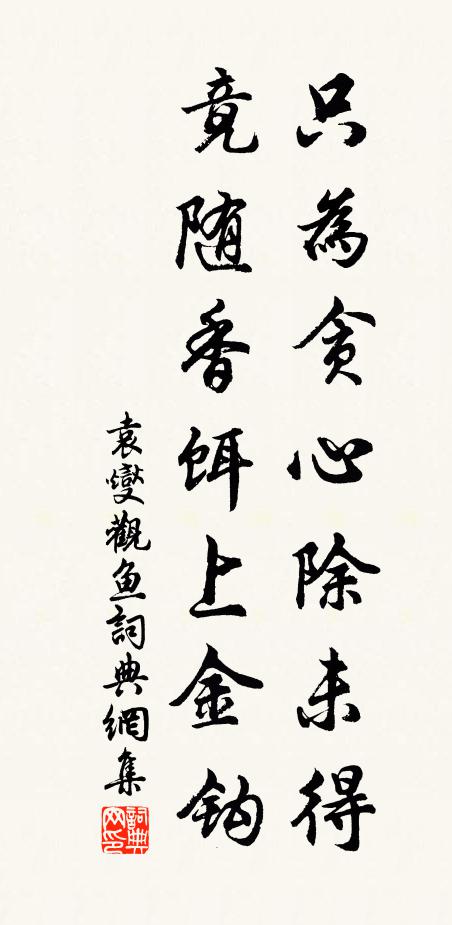 只為貪心除未得
竟随香餌上金鈎
袁燮觀魚詞典網集
詞典網印